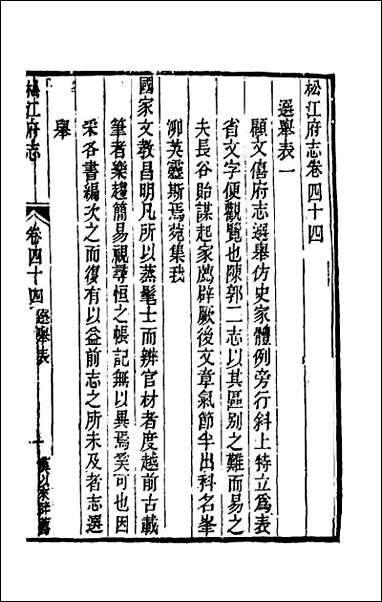 松江府志卷四十四
選舉表一
顧文僖府志選舉仿史家體例旁行斜上特立為表
省文字便觀覽也陳郭二志以其區別之難而易之
夫長谷貽謀起家薦辟厥後文章氣節半出科名峯
泖英靈斯焉苑集我
國家文敎昌明凡所以蒸髦士而辨官材者度越前古載
筆者樂趨簡易視尋恒之帳記無以異焉奚可也因
采各書編次之而復有以益前志之所未及者志選
舉
松江府志
卷四十四 選舉表
一